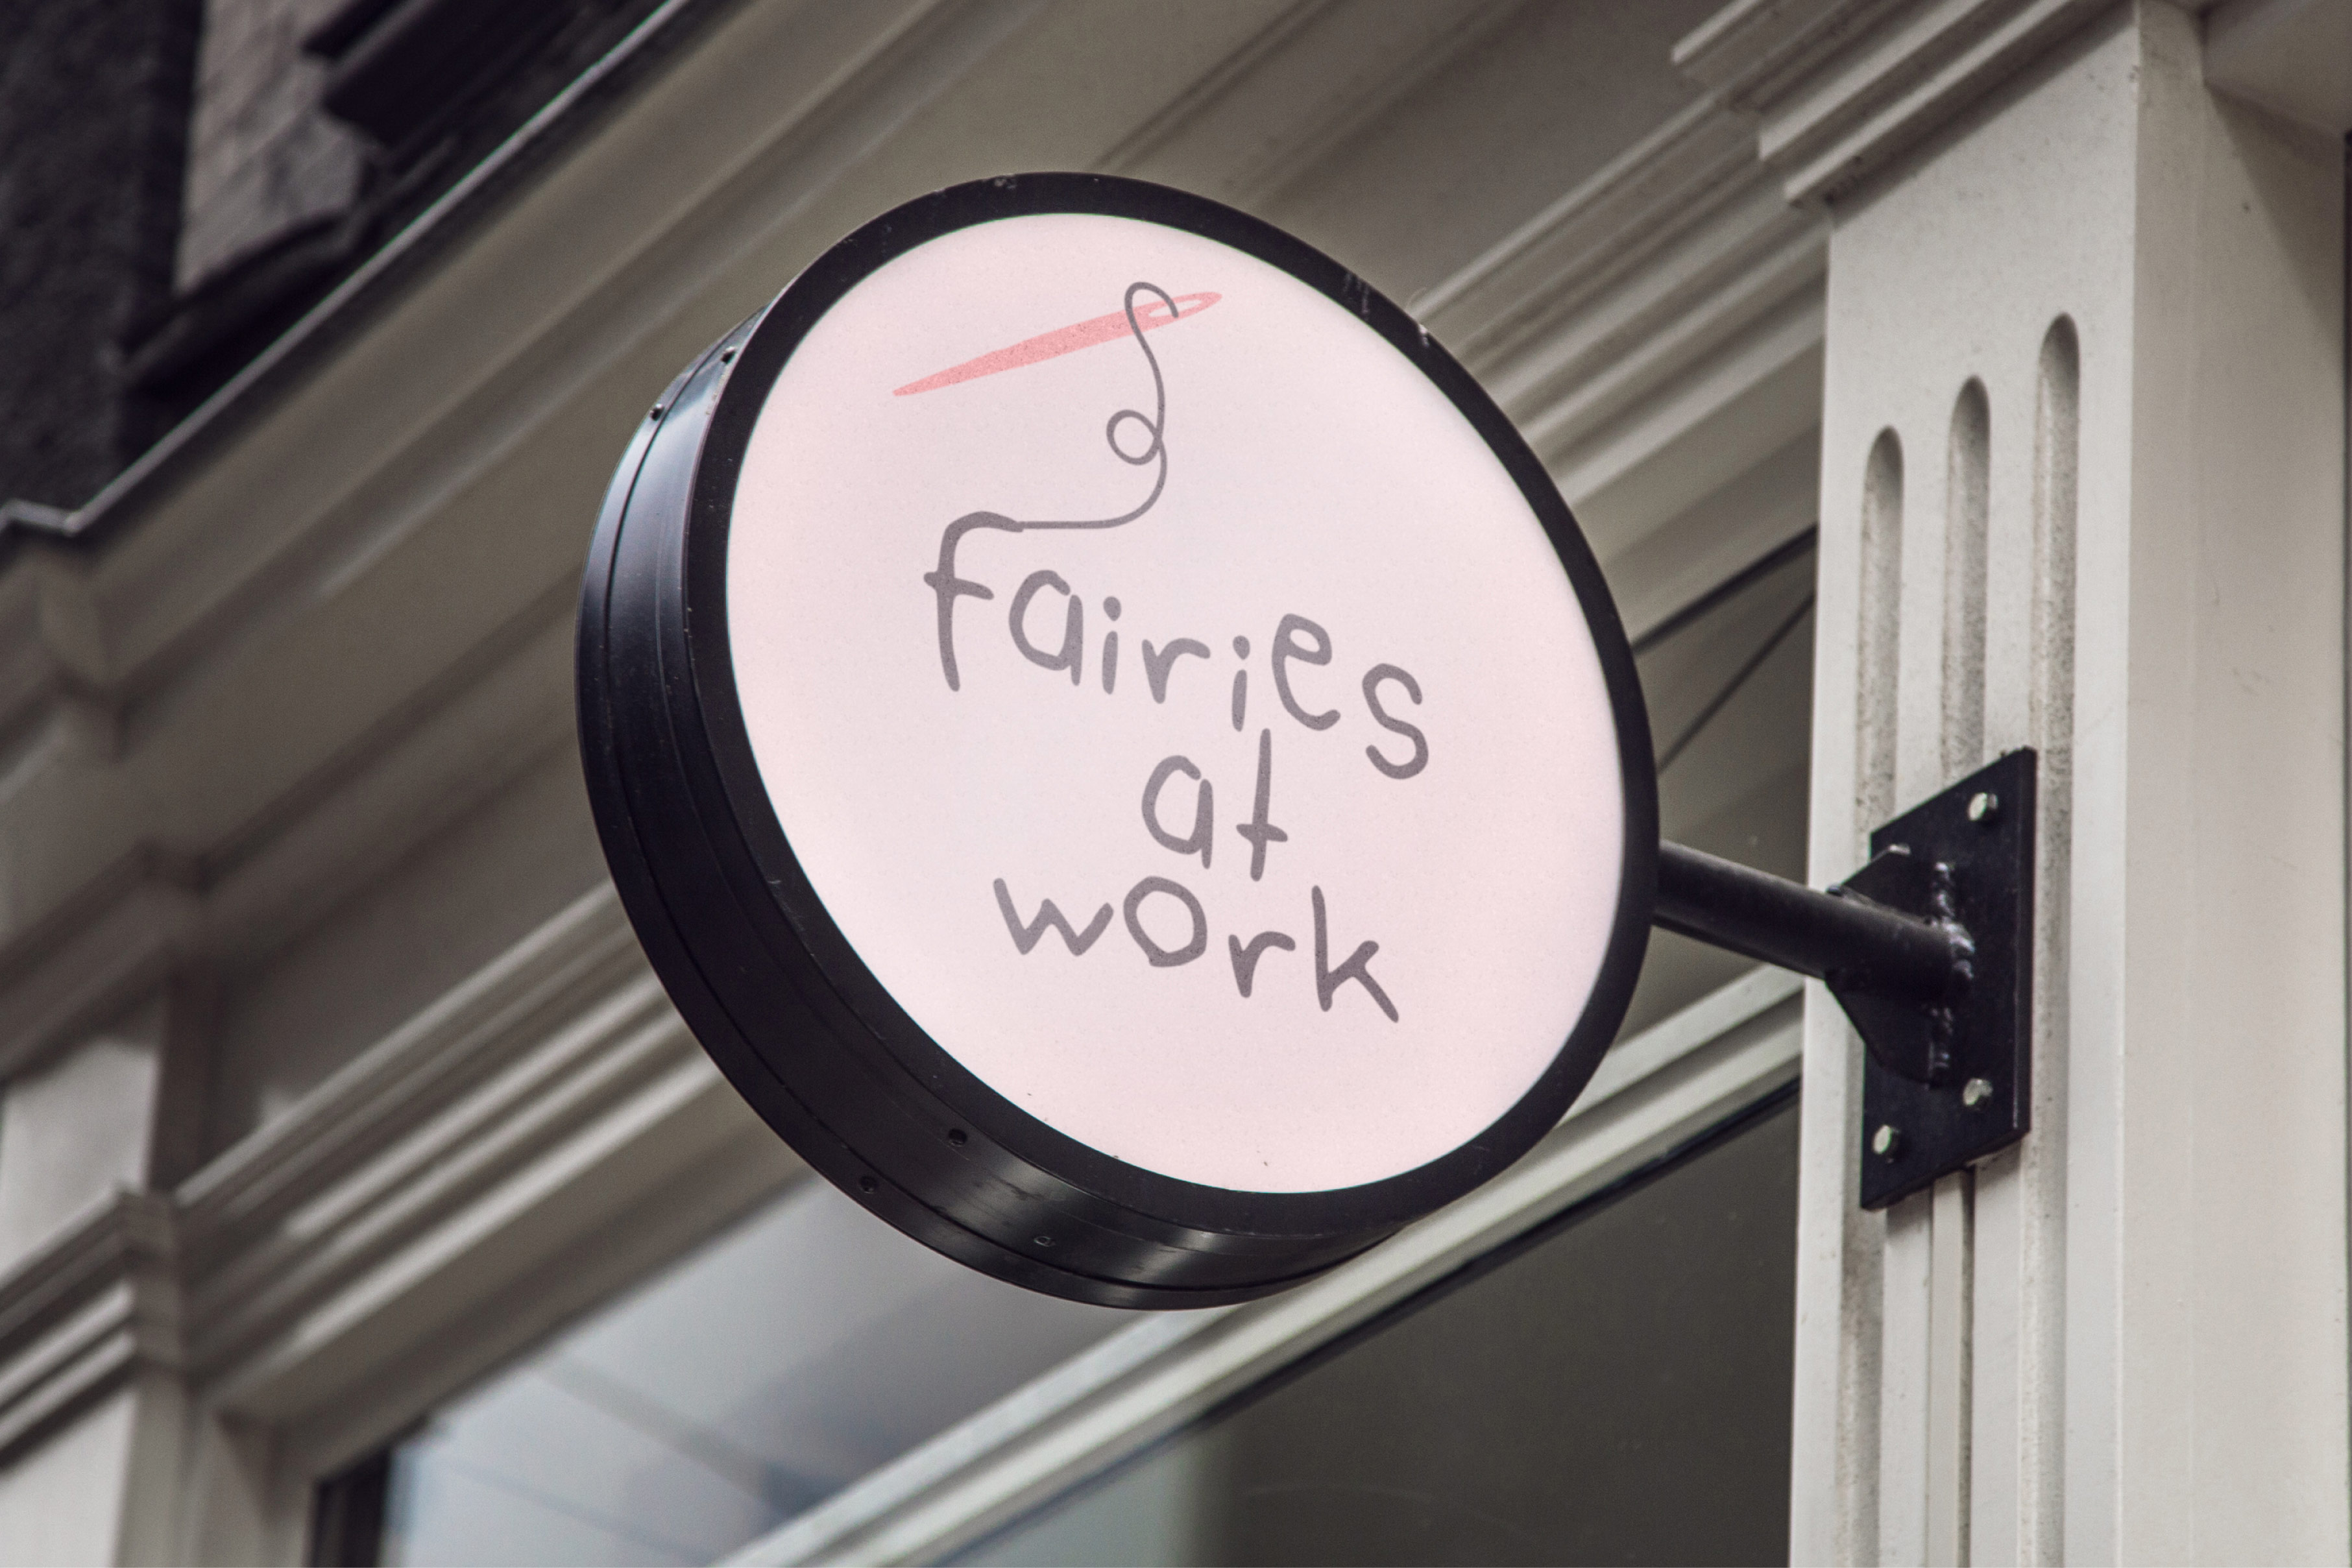 fairies
at
work